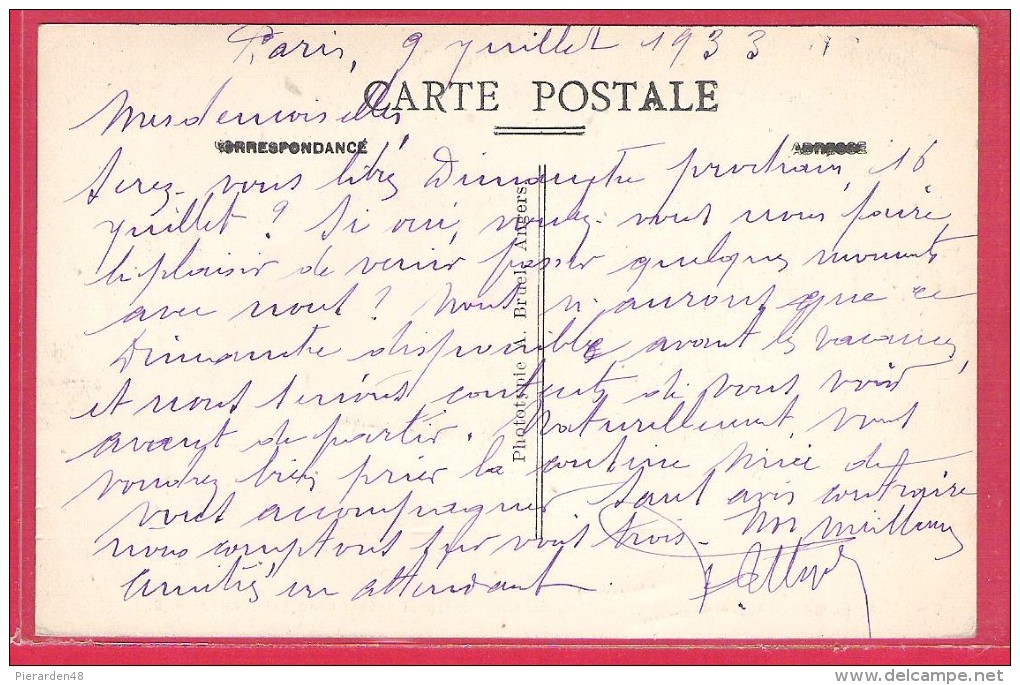 Paris, 9 juillet 1933
CARTE POSTALE
Mesdemoiselles,
CORRESPONDANCE
ADRESSE
Serez-vous libres Dimanche prochain, 16
juillet ? Si oui, voulez-vous nous faire
le plaisir de venir passer quelques moments
avec nous ? Nous n'aurons que ce
Dimanche disponible avant les vacances,
et nous serions contents de vous voir
avant de partir. Naturellement, vous
voudrez bien prier la cousine de
vous accompagner. Sauf avis contraire
nous comptons sur vous trois. Nos meilleures
amitiés en attendant.
Phototypie A. Bruel, Angers
Pierarden48
delcampe.net